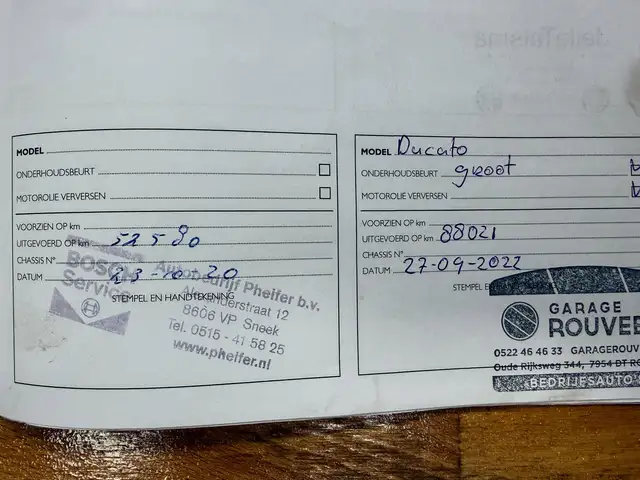 MODEL
ONDERHOUDSBEURT
MOTOROLIE VERVERSEN
VOORZIEN OP km
UITGEVOERD OP km 52580
CHASSIS N°
DATUM 23-10-20
STEMPEL EN HANDTEKENING
BOSCH
Service
Autobedrijf Pheifer b.v.
Alexanderstraat 12
8606 VP Sneek
Tel. 0515 - 41 58 25
www.pheifer.nl
MODEL Ducato
ONDERHOUDSBEURT groot
MOTOROLIE VERVERSEN
VOORZIEN OP km
UITGEVOERD OP km 88021
CHASSIS N°
DATUM 27-09-2022
STEMPEL E
GARAGE
ROUVE
0522 46 46 33 GARAGEROUV
Oude Rijksweg 344, 7954 DT RO
BEDRIJFSAUTO